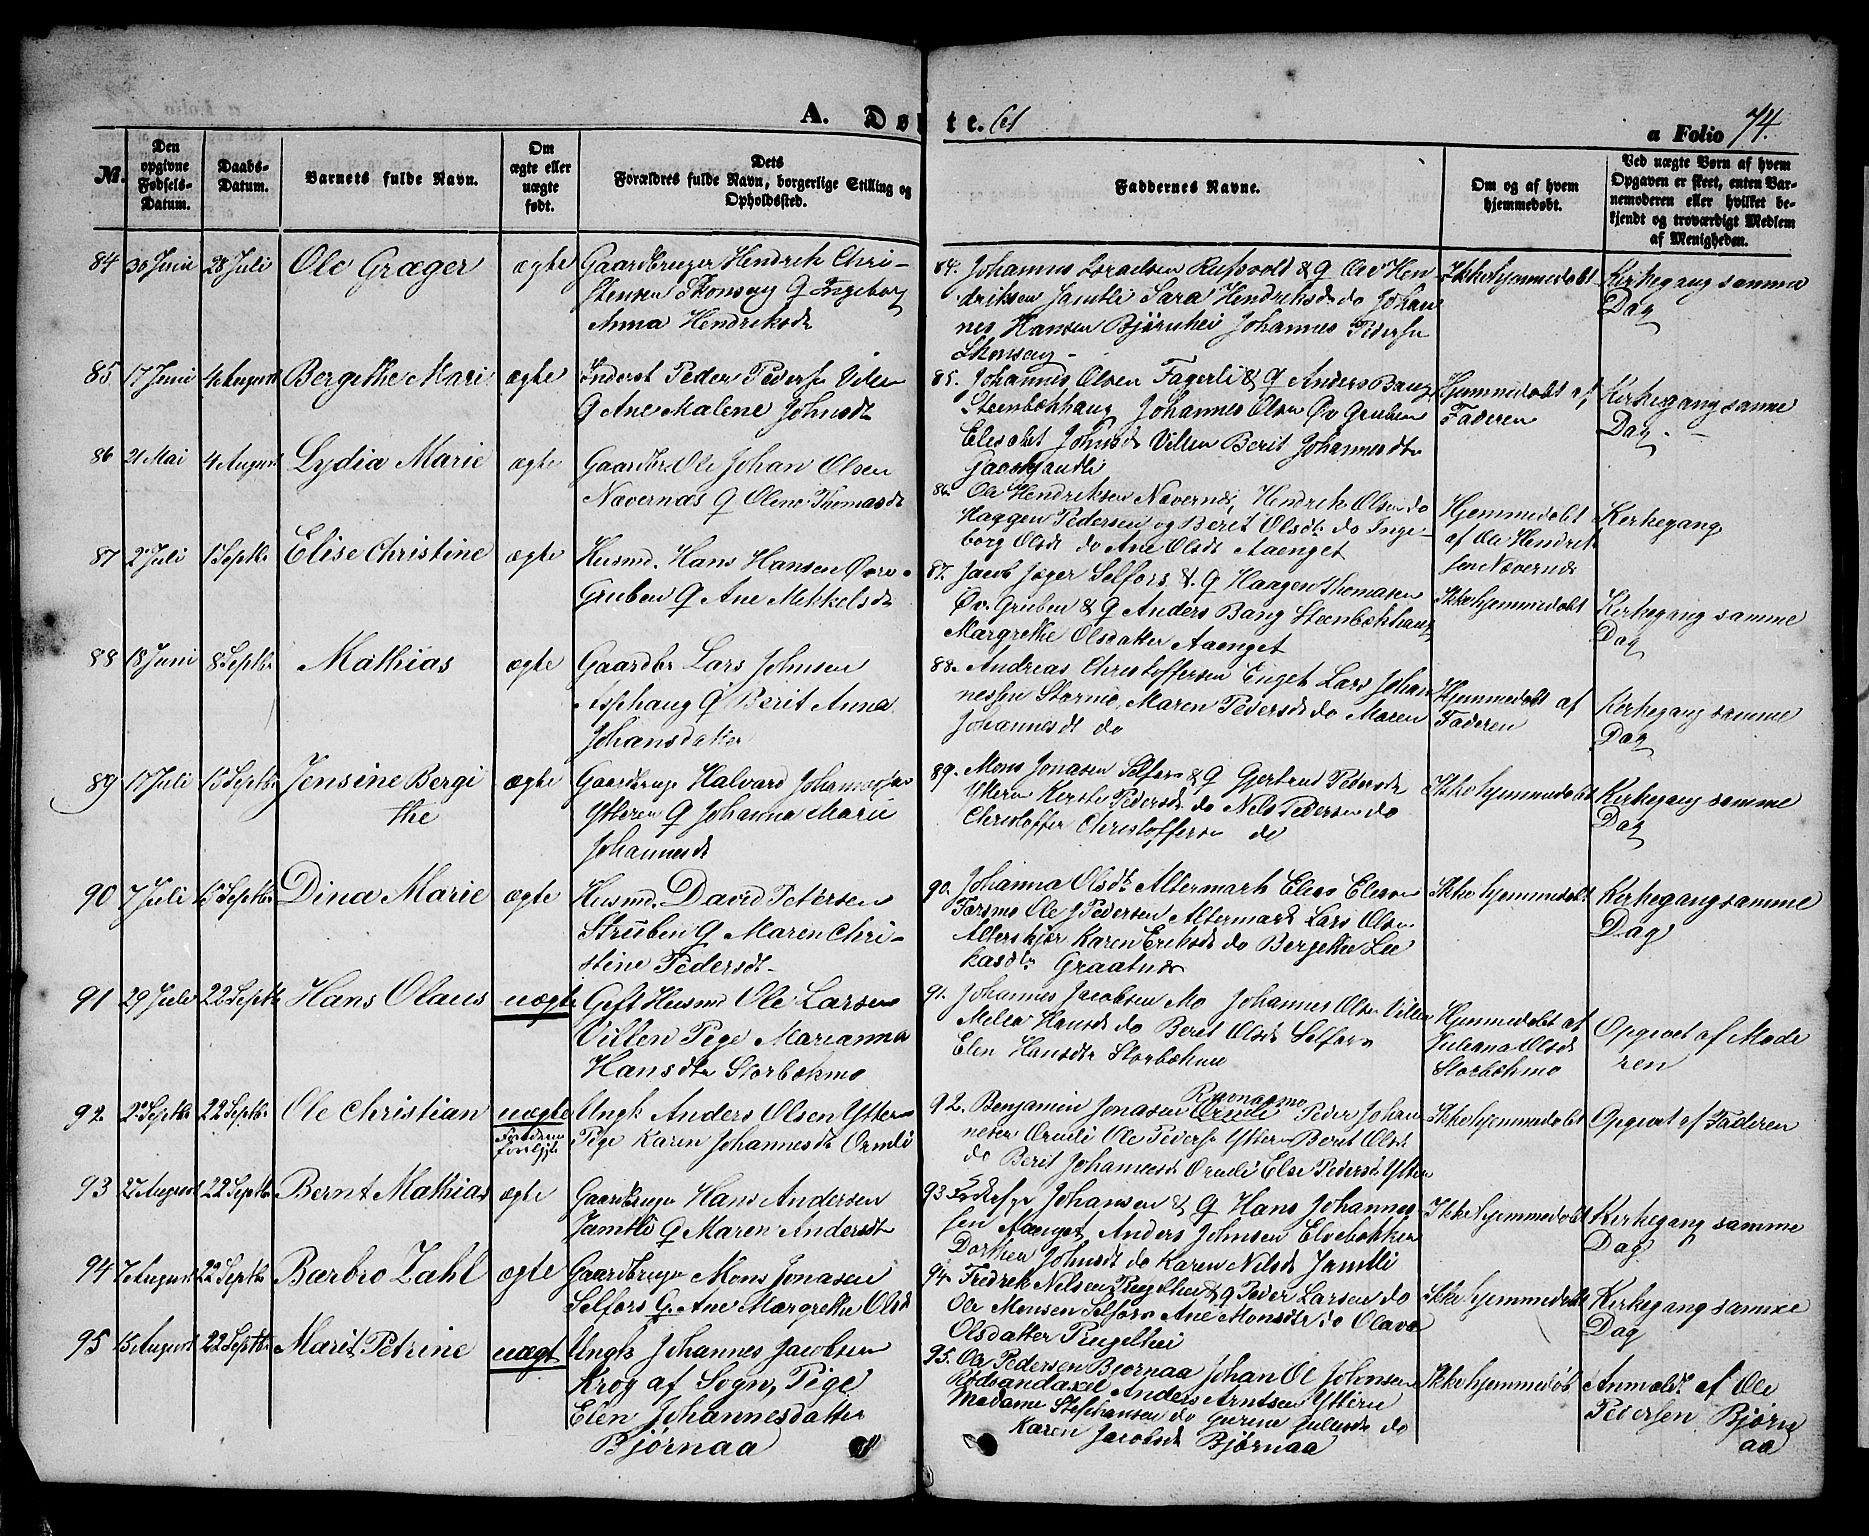 A. Døbte. 61
a Folio 74.
№. Den opgivne Fødsels-Datum. Daabs-Datum. Barnets fulde Navn. Om ægte eller uægte født. Dets Forældres fulde Navn, borgerlige Stilling og Opholdssted. Faddernes Navne. Om og af hvem hjemmedøbt. Ved uægte Børn af hvem Opgaven er skeet, enten Barnemoderen eller hvilket bekjendt og troværdigt Medlem af Menigheden.
84 30 Juni 28 Juli Ole Græger ægte Gaardbruger Hendrik Chri-
stensen Skonseng & Ingeborg
Anna Hendriksdt
84. Johannes Israelsen Rufsvold & Q Ole Hen-
driksen Jamtli Sara Hendriksdt do Johan
nes Hansen Bjørnhei Johannes Pedersen
Skonseng
Ikke hjemmedøbt
Kirkegang samme
Dag
85 17 Juni 4 August Bergithe Mari ægte Inderst Peder Peders Vilen
Q Ane Malene Johnsdt
85. Johannes Olsen Fagerli & Q Anders Bang
Steenbækhaug Johannes Olsen Øv Gruben
Elisabet Johnsdt Villen Berit Johannesdtr
Hjemmedøbt af
Faderen
Kirkegang samme
Dag
86 21 Mai 4 August Lydia Marie ægte Gaardbr Ole Johan Olsen
Nævernæs Q Olene Thomasdt
86. Ole Hendriksen Nævernæs, Hendrik Olsen do
Haagen Pedersen og Berit Olsdtr do Inge-
borg Olsdt do Ane Olsdt Aaenget
Hjemmedøbt
af Ole Hendrik
sen Nævernæs
Kirkegang
87 2 Juli 1 Septbr Elise Christine ægte Husmd. Hans Hansen Øvre
Gruben Q Ane Mikkelsdt
87. Jacob Jæger Selfors & Q Haagen Thomasen
Øv. Gruben & Q Anders Bang Steenbækhaug
Margrethe Olsdatter Aaenget
Ikke hjemmedøbt
Kirkegang samme
Dag
88 18 Juni 8 Septbr Mathias ægte Gaardbr Lars Johnsen
Asphaug Q Berit Anna
Johansdatter
88. Andreas Christoffersen Enget Lars Johan
nessen Stormo, Maren Pedersdt do Maren
Johannesdt do
Hjemmedøbt af
Faderen
Kirkegang samme
Dag
89 17 Juli 15 Septbr Jensine Bergi
the ægte Gaardbruger Halvard Johannessen
Ytteren Q Johanna Marie
Johannesdt
89. Mons Jonasen Selfors & Q Gjertrud Pedersdt
Yttern Kirsti Pedersdt do Nils Pedersen do
Christoffer Christoffersen do
Ikke hjemmedøbt
Kirkegang samme
Dag
90 7 Juli 15 Septbr Dina Marie ægte Husmd. David Petersen
Strüben Q Maren Chri-
stine Pedersdt
90. Johanna Olsdtr Altermark Elias
Forsmo Ole J Pedersen Altermark Lars Olsen
Alterskjær Karen Eriksdt do Bergithe Lu
kasdtr Graatnæs
Ikke hjemmedøbt
Kirkegang samme
Dag
91 29 Juli 22 Septbr Hans Olaus uægte Gift Husmd Ole Larsen
Villen Pige Marianna
Hansdtr Storbækmo
91. Johannes Jacobsen Mo Johannes Olsen Villen
Melea Hansdt do Berit Olsdt Selfors
Elen Hansdtr Storbækmo
Hjemmedøbt af
Juliana Olsdt
Storbækmo
Opgivet af Mode
ren
92. 2 Septbr 22 Septbr Ole Christian uægte Ungk Anders Olsen Yttern
Pige Karen Johannesdt Ørmli
92. Benjamin Jonasen Ørmli Peder Johan
nesen Ørmli Ole Peders Yttern Berit Olsdt
do Berit Johannesdt Ørmli Else Pedersdt Yttern
Ikke hjemmedøbt
Opgivet af Faderen
93 27 August 22 Septbr Bernt Mathias ægte Gaardbruger Hans Andersen
Jamtli Q Maren Andersdt
93. Johansen & Q Hans Johannes-
sen Aaenget, Anders Johnsen Elvebakken
Dorthea Johnsdt do Karen Nilsdt Jamtli
Ikke hjemmedøbt
Kirkegang samme
Dag
94 7 August 22 Septbr Barbro Zahl ægte Gaardbruger Mons Jonasen
Selfors Q Ane Margrethe Olsdt
94. Fredrik Nilsen Tingelhei & Q Peder Larsen do
Ole Monsen Selfors Ane Monsdtr do Olava
Olsdatter Tingelhei
Ikke hjemmedøbt
Kirkegang samme
Dag
95 15 August 22 Septbr Marit Petrine uægt Ungk Johannes Jacobsen
Krog af Sogn, Pige
Elen Johannesdatter
Bjørnaa
95. Ole Pedersen Bjørnaa Johan Ol Johnsen
Rødsandaxel Anders Arntsen Yttern
Madame Stephansen do Gurine Julusdt do
Karen Jacobsdt Bjørnaa
Ikke hjemmedøb
Anmeldt af Ole
Pedersen Bjørn
aa